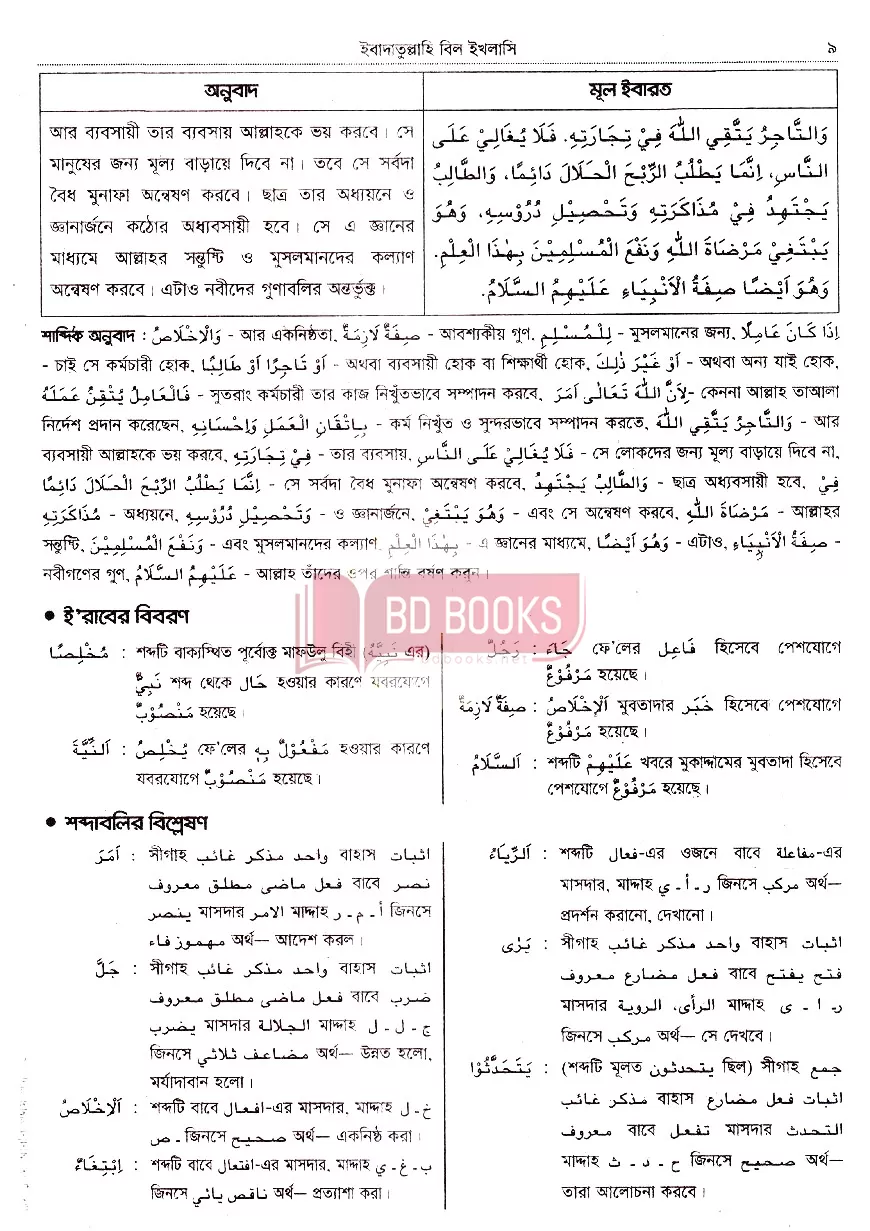 ইবাদাতুল্লাহি বিল ইখলাসি ৯
অনুবাদ
আর ব্যবসায়ী তার ব্যবসায় আল্লাহকে ভয় করবে। সে
মানুষের জন্য মূল্য বাড়ায়ে দিবে না। তবে সে সর্বদা
বৈধ মুনাফা অন্বেষণ করবে। ছাত্র তার অধ্যয়নে ও
জ্ঞানার্জনে কঠোর অধ্যবসায়ী হবে। সে এ জ্ঞানের
মাধ্যমে আল্লাহর সন্তুষ্টি ও মুসলমানদের কল্যাণ
অন্বেষণ করবে। এটাও নবীদের গুণাবলির অন্তর্ভুক্ত।
মূল ইবারত
وَالتَّاجِرُ يَتَّقِي اللّٰهَ فِيْ تِجَارَتِهِ. فَلَا يُغَالِيْ عَلَى
النَّاسِ، اِنَّمَا يَطْلُبُ الرِّبْحَ الْحَلَالَ دَائِمًا، وَالطَّالِبُ
يَجْتَهِدُ فِيْ مُذَاكَرَتِهِ وَتَحْصِيْلِ دُرُوْسِهِ، وَهُوَ
يَبْتَغِيْ مَرْضَاةَ اللّٰهِ وَنَفْعَ الْمُسْلِمِيْنَ بِهٰذَا الْعِلْمِ.
وَهُوَ اَيْضًا صِفَةُ الْاَنْبِيَاءِ عَلَيْهِمُ السَّلَامُ.
শাব্দিক অনুবাদ : وَالْاِخْلَاصُ - আর একনিষ্ঠতা, صِفَةٌ لَازِمَةٌ - আবশ্যকীয় গুণ, لِلْمُسْلِمِ - মুসলমানের জন্য, اِذَا كَانَ عَامِلًا
- চাই সে কর্মচারী হোক, اَوْ تَاجِرًا اَوْ طَالِبًا - অথবা ব্যবসায়ী হোক বা শিক্ষার্থী হোক, اَوْ غَيْرَ ذٰلِكَ - অথবা অন্য যাই হোক,
فَالْعَامِلُ يُتْقِنُ عَمَلَهُ - সুতরাং কর্মচারী তার কাজ নিখুঁতভাবে সম্পাদন করবে, لِاَنَّ اللّٰهَ تَعَالٰى اَمَرَ - কেননা আল্লাহ তাআলা
নির্দেশ প্রদান করেছেন, بِاِتْقَانِ الْعَمَلِ وَاِحْسَانِهِ - কর্ম নিখুঁত ও সুন্দরভাবে সম্পাদন করতে, وَالتَّاجِرُ يَتَّقِي اللّٰهَ - আর
ব্যবসায়ী আল্লাহকে ভয় করবে, فِيْ تِجَارَتِهِ - তার ব্যবসায়, فَلَا يُغَالِيْ عَلَى النَّاسِ - সে লোকদের জন্য মূল্য বাড়ায়ে দিবে না,
اِنَّمَا يَطْلُبُ الرِّبْحَ الْحَلَالَ دَائِمًا - সে সর্বদা বৈধ মুনাফা অন্বেষণ করবে, وَالطَّالِبُ يَجْتَهِدُ - ছাত্র অধ্যবসায়ী হবে, فِيْ
مُذَاكَرَتِهِ - অধ্যয়নে, وَتَحْصِيْلِ دُرُوْسِهِ - ও জ্ঞানার্জনে, وَهُوَ يَبْتَغِيْ - এবং সে অন্বেষণ করবে, مَرْضَاةَ اللّٰهِ - আল্লাহর
সন্তুষ্টি, وَنَفْعَ الْمُسْلِمِيْنَ - এবং মুসলমানদের কল্যাণ, بِهٰذَا الْعِلْمِ - এ জ্ঞানের মাধ্যমে, وَهُوَ اَيْضًا - এটাও, صِفَةُ الْاَنْبِيَاءِ -
নবীগণের গুণ, عَلَيْهِمُ السَّلَامُ - আল্লাহ তাঁদের ওপর শান্তি বর্ষণ করুন।
BD BOOKS
bdbooks.net
• ই'রাবের বিবরণ
مُخْلِصًا : শব্দটি বাক্যস্থিত পূর্বোক্ত মাফউলু বিহী (نَبِيَّهُ এর)
نَبِيَّ শব্দ থেকে حَال হওয়ার কারণে যবরযোগে
مَنْصُوْبٌ হয়েছে।
اَلنِّيَّةَ : يُخْلِصُ ফে'লের مَفْعُوْلٌ بِهِ হওয়ার কারণে
যবরযোগে مَنْصُوْبٌ হয়েছে।
رَجُلٌ : جَاءَ ফে'লের فَاعِل হিসেবে পেশযোগে
مَرْفُوْعٌ হয়েছে।
صِفَةٌ لَازِمَةٌ : اَلْاِخْلَاصُ মুবতাদার خَبَر হিসেবে পেশযোগে
مَرْفُوْعٌ হয়েছে।
اَلسَّلَامُ : শব্দটি عَلَيْهِمْ খবরে মুকাদ্দামের মুবতাদা হিসেবে
পেশযোগে مَرْفُوْعٌ হয়েছে।
• শব্দাবলির বিশ্লেষণ
اَمَرَ : সীগাহ واحد مذكر غائب বাহাস اثبات
فعل ماضى مطلق معروف বাবে نصر
ينصر মাসদার الامر মাদ্দাহ أ - م - ر জিনসে
مهموز فاء অর্থ— আদেশ করল।
جَلَّ : সীগাহ واحد مذكر غائب বাহাস اثبات
فعل ماضى مطلق معروف বাবে ضرب
يضرب মাসদার الجلالة মাদ্দাহ ج - ل - ل
জিনসে مضاعف ثلاثي অর্থ— উন্নত হলো,
মর্যাদাবান হলো।
اَلْاِخْلَاصُ : শব্দটি বাবে افعال-এর মাসদার, মাদ্দাহ خ - ل
- ص জিনসে صحيح অর্থ— একনিষ্ঠ করা।
اِبْتِغَاءٌ : শব্দটি বাবে افتعال-এর মাসদার, মাদ্দাহ ب - غ - ي
জিনসে ناقص يائي অর্থ— প্রত্যাশা করা।
اَلرِّيَاءُ : শব্দটি فعال-এর ওজনে বাবে مفاعلة-এর
মাসদার, মাদ্দাহ ر - أ - ي জিনসে مركب অর্থ—
প্রদর্শন করানো, দেখানো।
يَرٰى : সীগাহ واحد مذكر غائب বাহাস اثبات
فعل مضارع معروف বাবে فتح يفتح
মাসদার الرأى، الروية মাদ্দাহ ر - ا - ى
জিনসে مركب অর্থ— সে দেখবে।
يَتَحَدَّثُوْا : (শব্দটি মূলত يتحدثون ছিল) সীগাহ جمع
مذكر غائب বাহাস اثبات فعل مضارع
معروف বাবে تفعل মাসদার التحدث
মাদ্দাহ ح - د - ث জিনসে صحيح অর্থ—
তারা আলোচনা করবে।